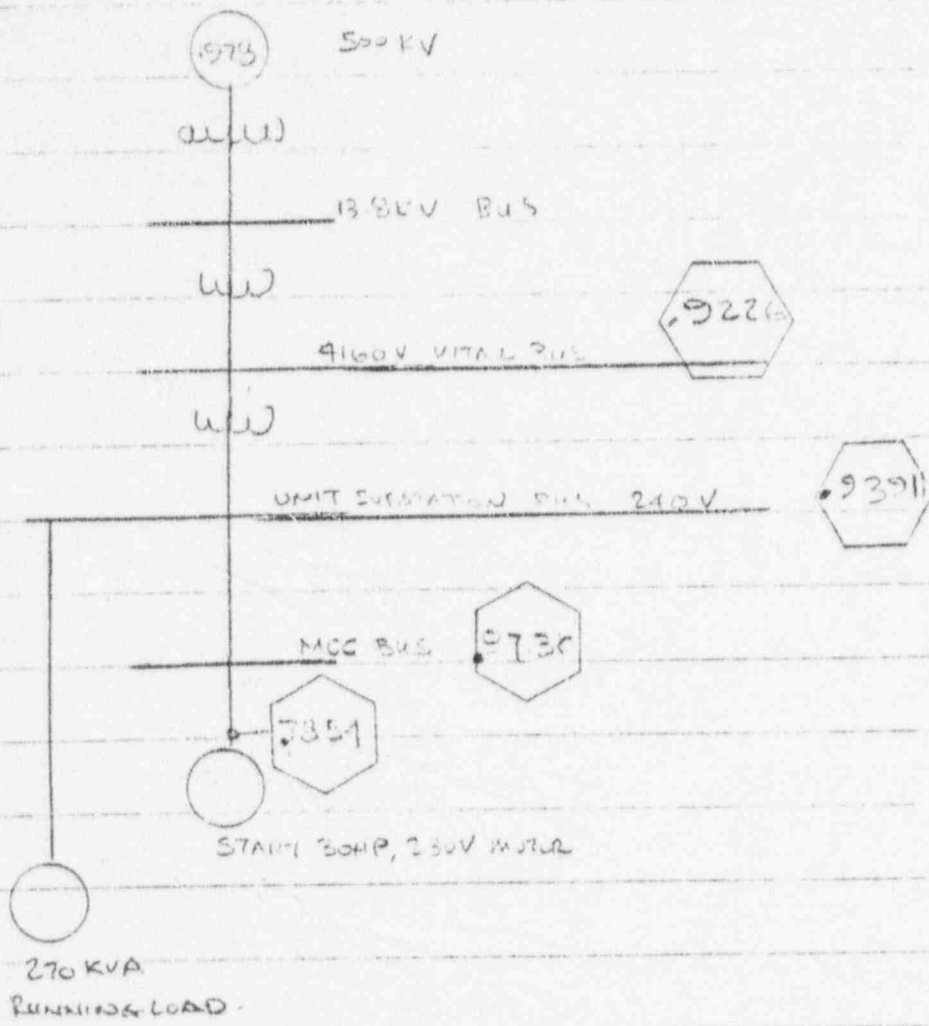 .973
500 KV
13.8KV BUS
4160V VITAL BUS
.9226
UNIT SUBSTATION BUS 240V
.9391
MCC BUS
START 30HP, 230V MOTOR
270 KVA
RUNNING LOAD.